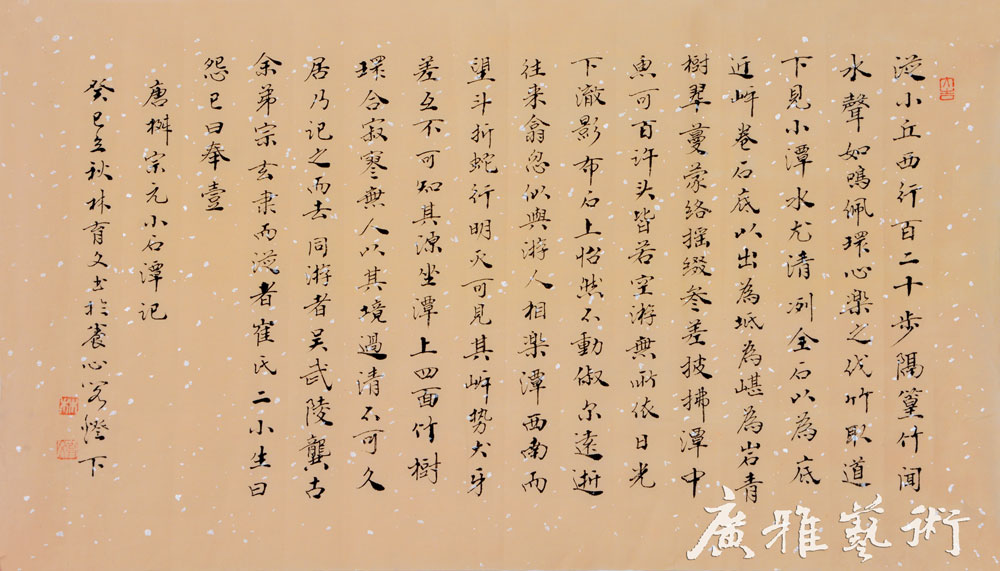 從小丘西行百二十步隔篁竹闻
水聲如鳴佩環心樂之伐竹取道
下見小潭水尤清冽全石以為底
近岸卷石底以出為坻為嵁為岩青
樹翠蔓蒙絡摇綴参差披拂潭中
魚可百许头皆若空游無所依日光
下澈影布石上怡然不動俶尔遠逝
往来翕忽似與游人相樂潭西南而
望斗折蛇行明灭可見其岸势犬牙
差互不可知其源坐潭上四面竹樹
環合寂寥無人以其境過清不可久
居乃记之而去同游者吴武陵龔古
余弟宗玄隶而從者崔氏二小生曰
恕己曰奉壹
唐柳宗元小石潭记
癸巳立秋林育文书於養心 燈下
大吉
廣雅藝術